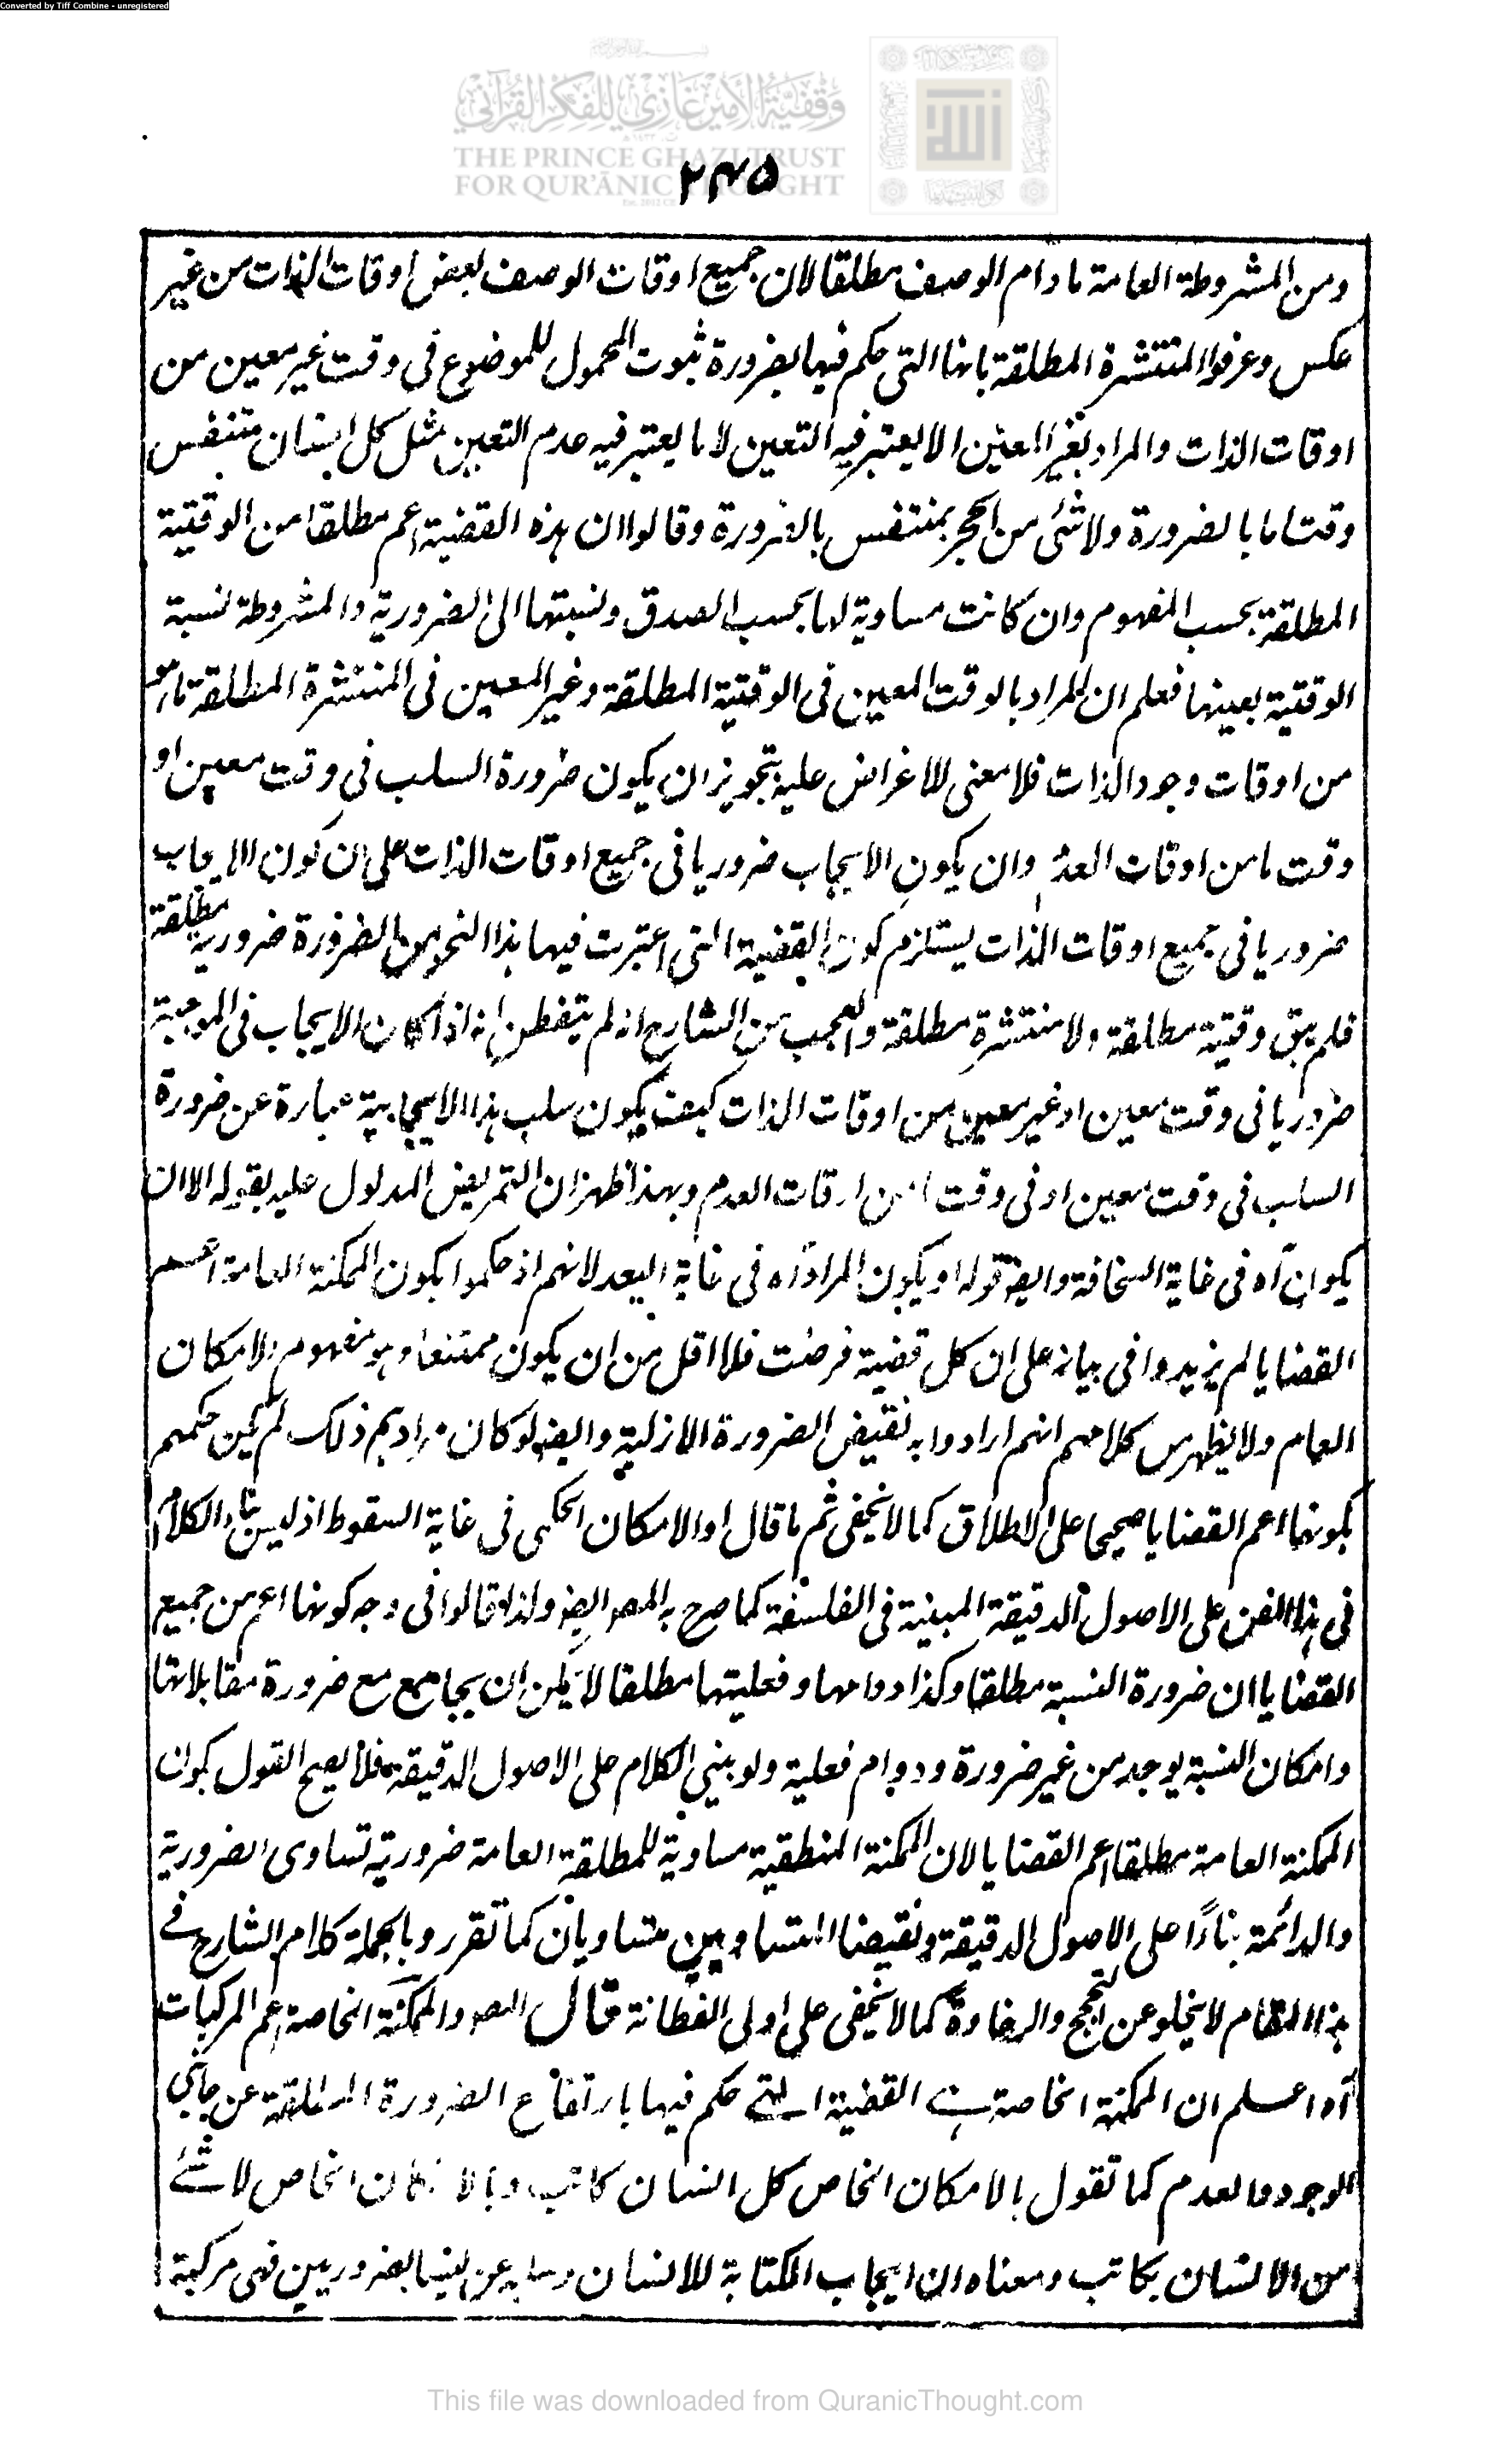 Converted by Tiff Combine - unregistered
وقفية الأمير غازي للفكر القرآني
THE PRINCE GHAZI TRUST
FOR QUR'ĀNIC THOUGHT
۲۴۵
ومن المشروطة العامة مادام الوصف مطلقا لان جميع اوقات الوصف بعض اوقات الذات من غير
عكس وعرفوا المنتشرة المطلقة بانها التى حكم فيها بضرورة ثبوت المحمول للموضوع فى وقت غير معين من
اوقات الذات والمراد بغير المعين الا يعتبر فيه التعين لا ما يعتبر فيه عدم التعين مثل كل انسان متنفس
وقتا ما بالضرورة ولا شئ من الحجر بمتنفس بالضرورة وقالوا ان هذه القضية اعم مطلقا من الوقتية
المطلقة بحسب المفهوم وان كانت مساوية لها بحسب الصدق ونسبتها الى الضرورية والمشروطة نسبة
الوقتية بعينها فعلم ان المراد بالوقت المعين فى الوقتية المطلقة وغير المعين فى المنتشرة المطلقة ما هو
من اوقات وجود الذات فلا معنى للاعراض عليه بتجويز ان يكون ضرورة السلب فى وقت معين او
وقت ما من اوقات العدم وان يكون الايجاب ضروريا فى جميع اوقات الذات على ان كون الايجاب
ضروريا فى جميع اوقات الذات يستلزم كون القضية التى اعتبرت فيها هذا النحو من الضرورة ضرورية مطلقة
فلم يبق وقتية مطلقة ولا منتشرة مطلقة والعجب من الشارح انه لم يتفطن انه اذا كان الايجاب فى الموجبة
ضروريا فى وقت معين او غير معين من اوقات الذات كيف يكون سلب هذا الايجابية عبارة عن ضرورة
السلب فى وقت معين او فى وقت ما من اوقات العدم وبهذا ظهر ان التمريض المدلول عليه بقوله الا ان
يكون آه فى غاية السخافة وايضا قوله او يكون المراد آه فى غاية البعد لانهم اذ حكموا بكون الممكنة العامة اعم
القضايا لم يزيدوا فى بيانه على ان كل قضية فرضت فلا اقل من ان يكون ممتنعا وهو مفهوم الامكان
العام ولا يظهر من كلامهم انهم ارادوا به نقيض الضرورة الازلية وايضا لو كان مرادهم ذلك لم يكن حكمهم
بكونها اعم القضايا صحيحا على الاطلاق كما لا يخفى ثم ما قال او الامكان الحكمى فى غاية السقوط اذ ليس بناء الكلام
فى هذا الفن على الاصول الدقيقة المبينة فى الفلسفة كما صرح به المصـ ايضا ولذا قالوا فى وجه كونها اعم من جميع
القضايا ان ضرورة النسبة مطلقا وكذا دوامها وفعليتها مطلقا لا يمكن ان يجامع مع ضرورة مقابلاتها
وامكان النسبة يوجد من غير ضرورة ودوام فعلية ولو بنى الكلام على الاصول الدقيقة فلا يصح القول بكون
الممكنة العامة مطلقا اعم القضايا لان الممكنة المنطقية مساوية للمطلقة العامة ضرورية تساوى الضرورية
والدائمة بناءً على الاصول الدقيقة ونقيضا المتساويين متساويان كما تقرر وبالجملة كلام الشارح فى
هذا المقام لا يخلو عن والرخاوة كما لا يخفى على اولى الفطانة قال المصـ والممكنة الخاصة اعم المركبات
آه اعلم ان الممكنة الخاصة هى القضية التى حكم فيها بارتفاع الضرورة المطلقة عن جانبى
الوجود والعدم كما تقول بالامكان الخاص كل انسان كاتب وبالامكان الخاص لا شئ
من الانسان بكاتب ومعناه ان ايجاب الكتابة للانسان وسلبه عن ليسا بضروريين فهى مركبة
This file was downloaded from QuranicThought.com